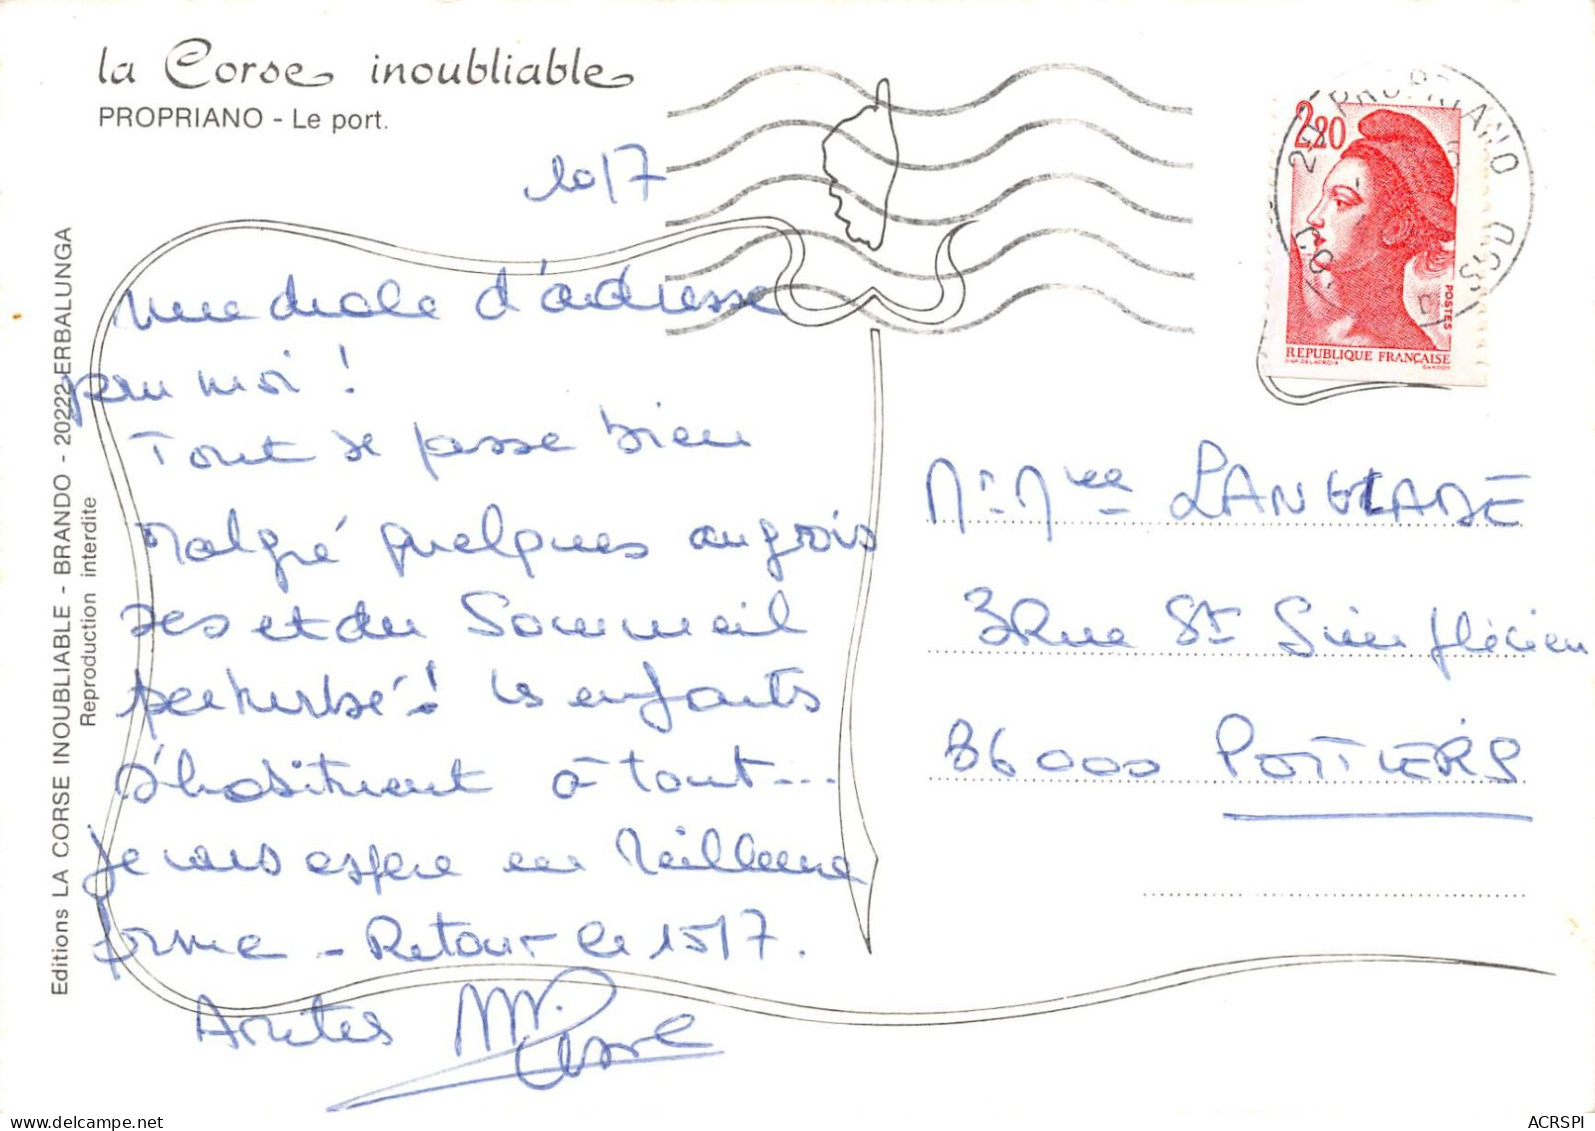 la Corse inoubliable
PROPRIANO - Le port.
10/7
une drole d'adresse
pour moi !
Tout se passe bien
Malgré quelques angois
ses et du Sommeil
perturbé ! les enfants
s'habituent à tout ...
je vous espère en Meilleure
forme - Retour le 15/7.
Amitiés
Editions LA CORSE INOUBLIABLE - BRANDO - 20222 ERBALUNGA
Reproduction interdite
2,20
POSTES
REPUBLIQUE FRANÇAISE
D'AP. DELACROIX GANDON
20 PROPRIANO
Mr Mme LANGLADE
3 Rue St Simplicien
86000 POITIERS
ACRSPI